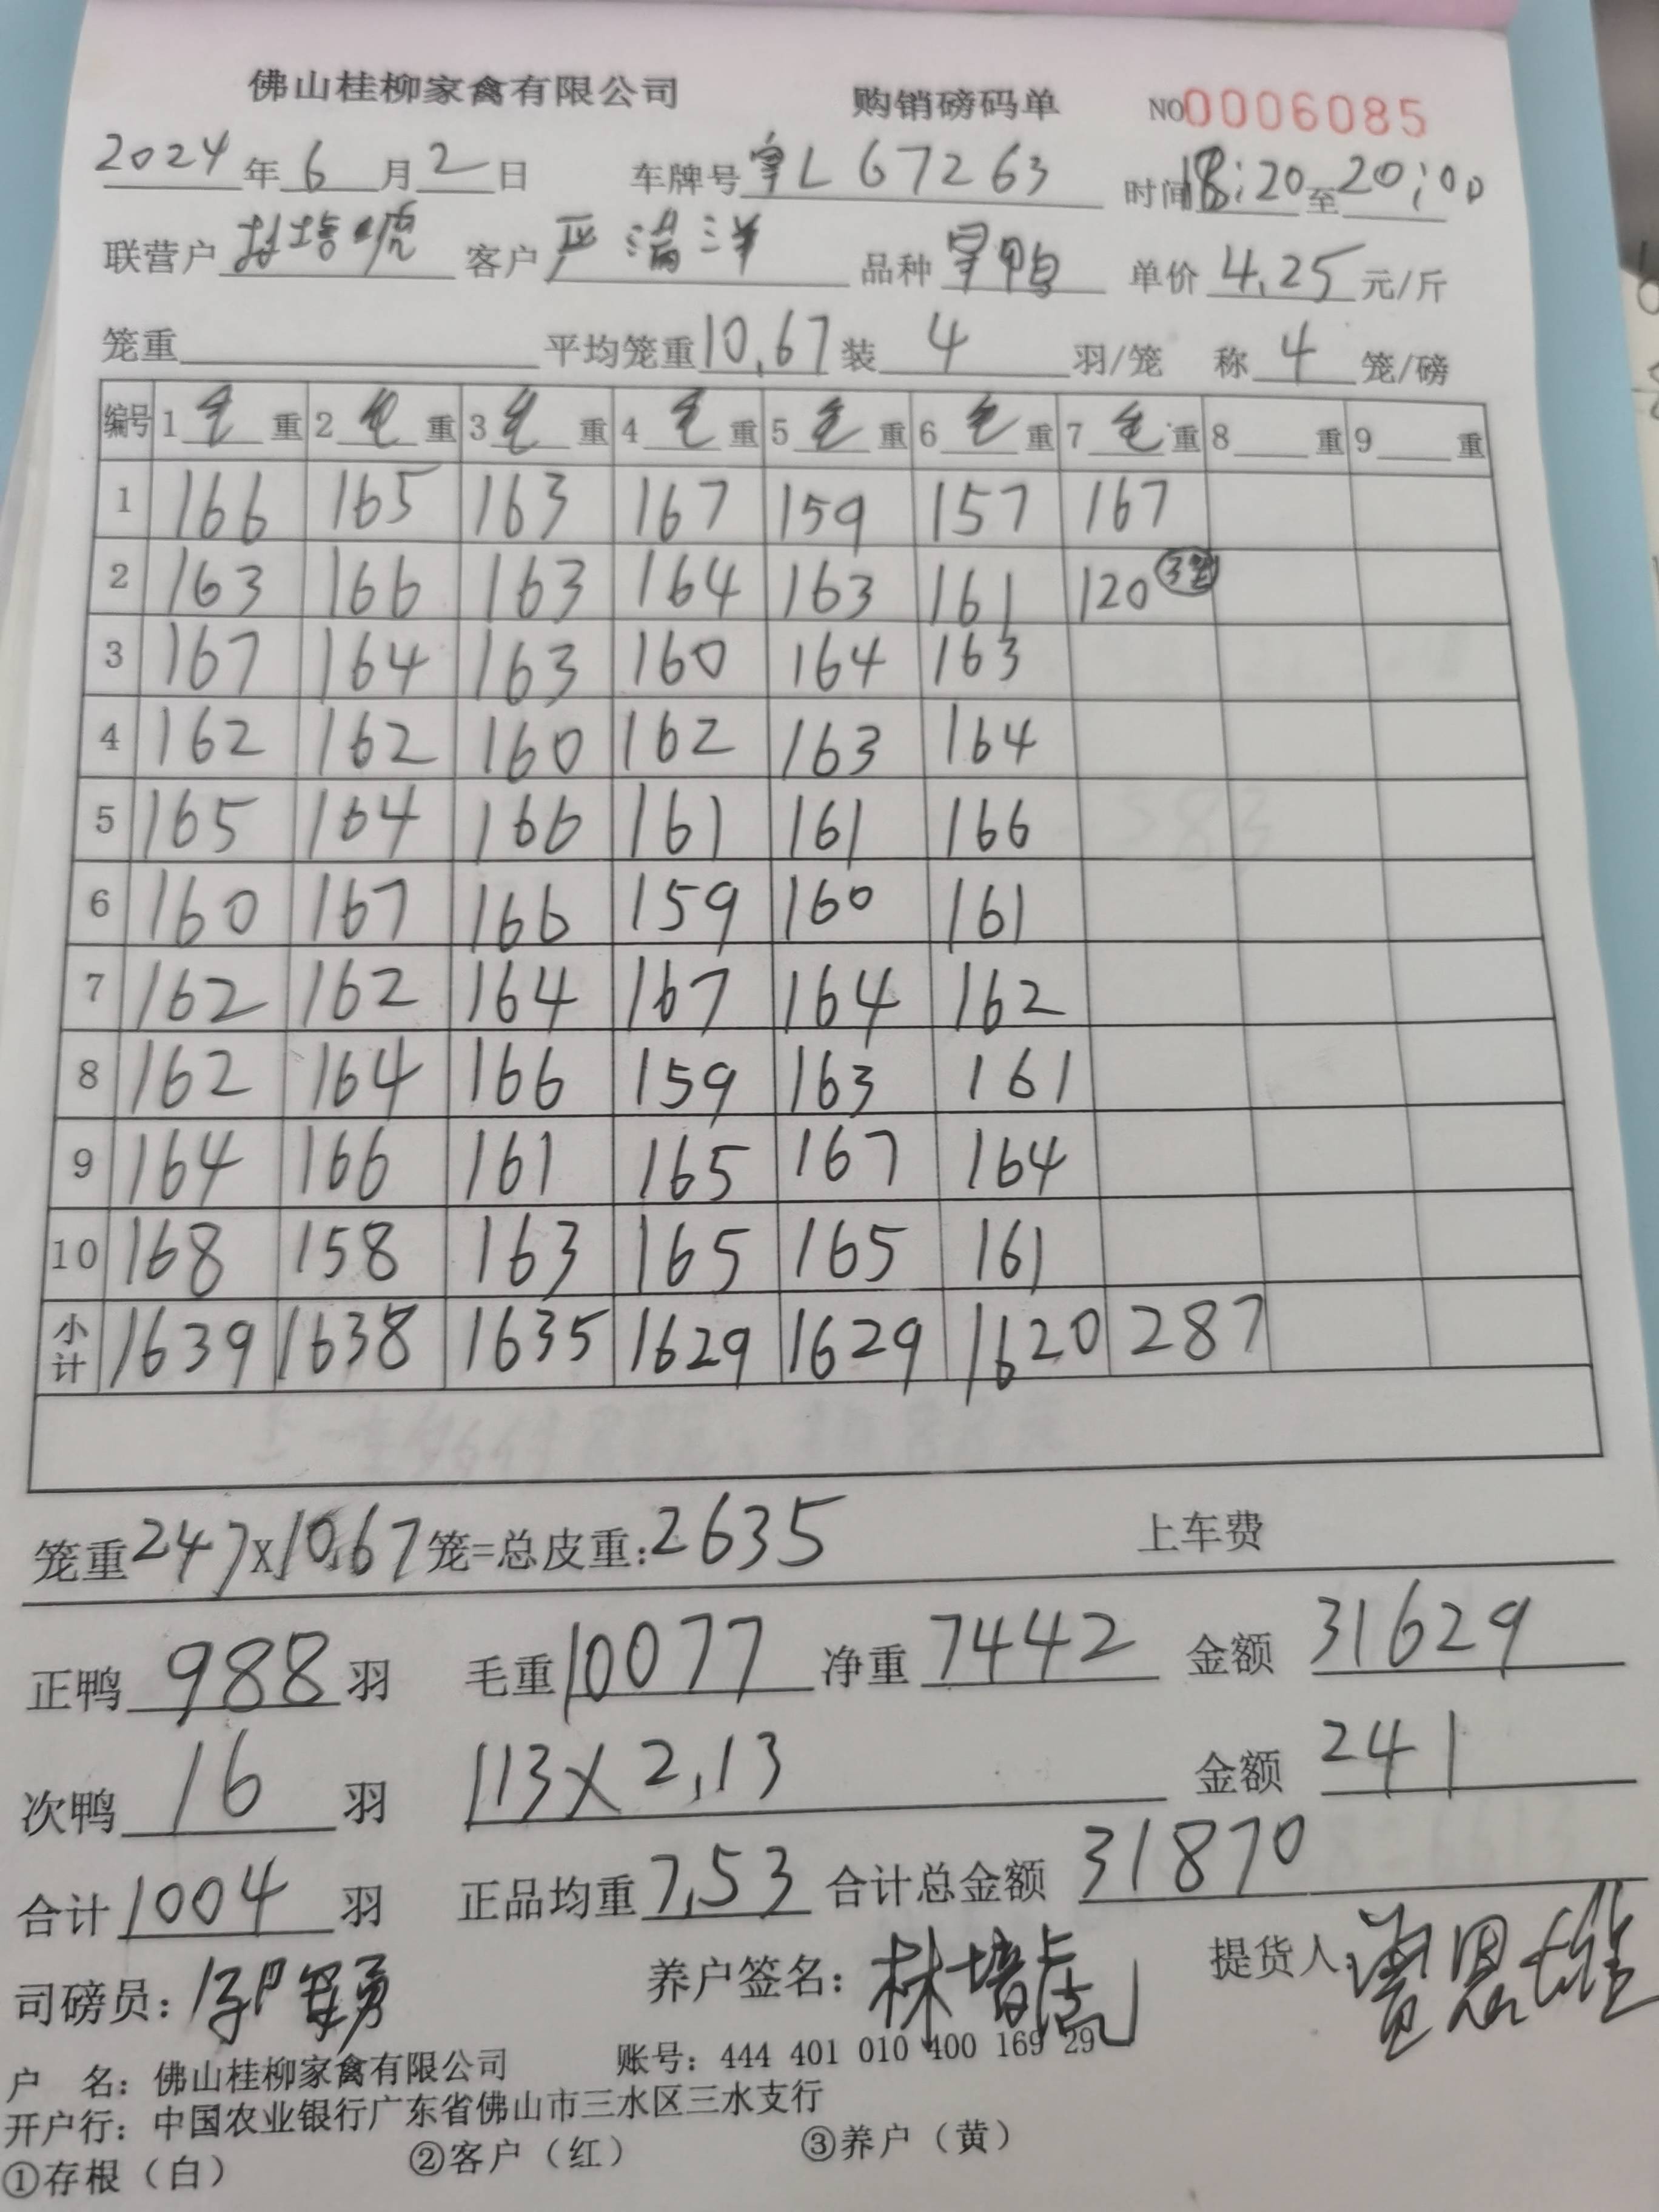 佛山桂柳家禽有限公司 购销磅码单 NO0006085
2024年6月2日 车牌号 L67263 时间18:20至20:00
联营户 客户严满洋 品种 单价4.25元/斤
笼重 平均笼重10.67装4羽/笼 称4笼/磅
编号 1毛重 2毛重 3毛重 4毛重 5毛重 6毛重 7毛重 8重 9重
1 166 165 163 167 159 157 167
2 163 166 163 164 163 161 120
3 167 164 163 160 164 163
4 162 162 160 162 163 164
5 165 164 166 161 161 166
6 160 167 166 159 160 161
7 162 162 164 167 164 162
8 162 164 166 159 163 161
9 164 166 161 165 167 164
10 168 158 163 165 165 161
小计 1639 1638 1635 1629 1629 1620 287
笼重247x10.67笼=总皮重:2635 上车费
正鸭988羽 毛重10077 净重7442 金额31629
次鸭16羽 113x2.13 金额241
合计1004羽 正品均重7.53 合计总金额31870
司磅员: 养户签名:林培虎 提货人:
户 名:佛山桂柳家禽有限公司 账号:444 401 010 400 169 29
开户行:中国农业银行广东省佛山市三水区三水支行
①存根(白) ②客户(红) ③养户(黄)